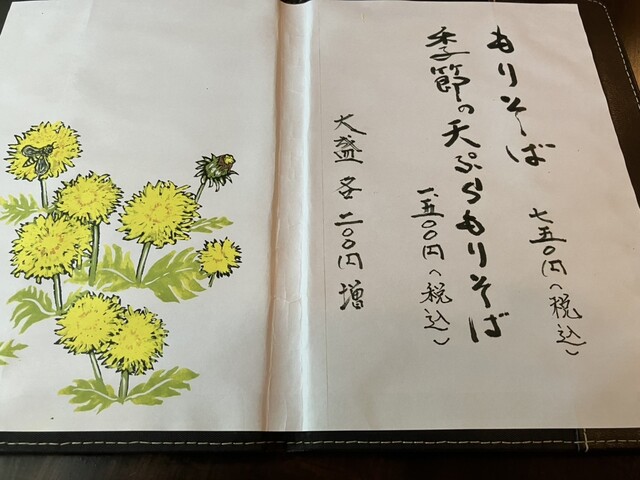 もりそば
七五〇円(税込)
季節の天ぷらもりそば
一五〇〇円(税込)
大盛 各二〇〇円増